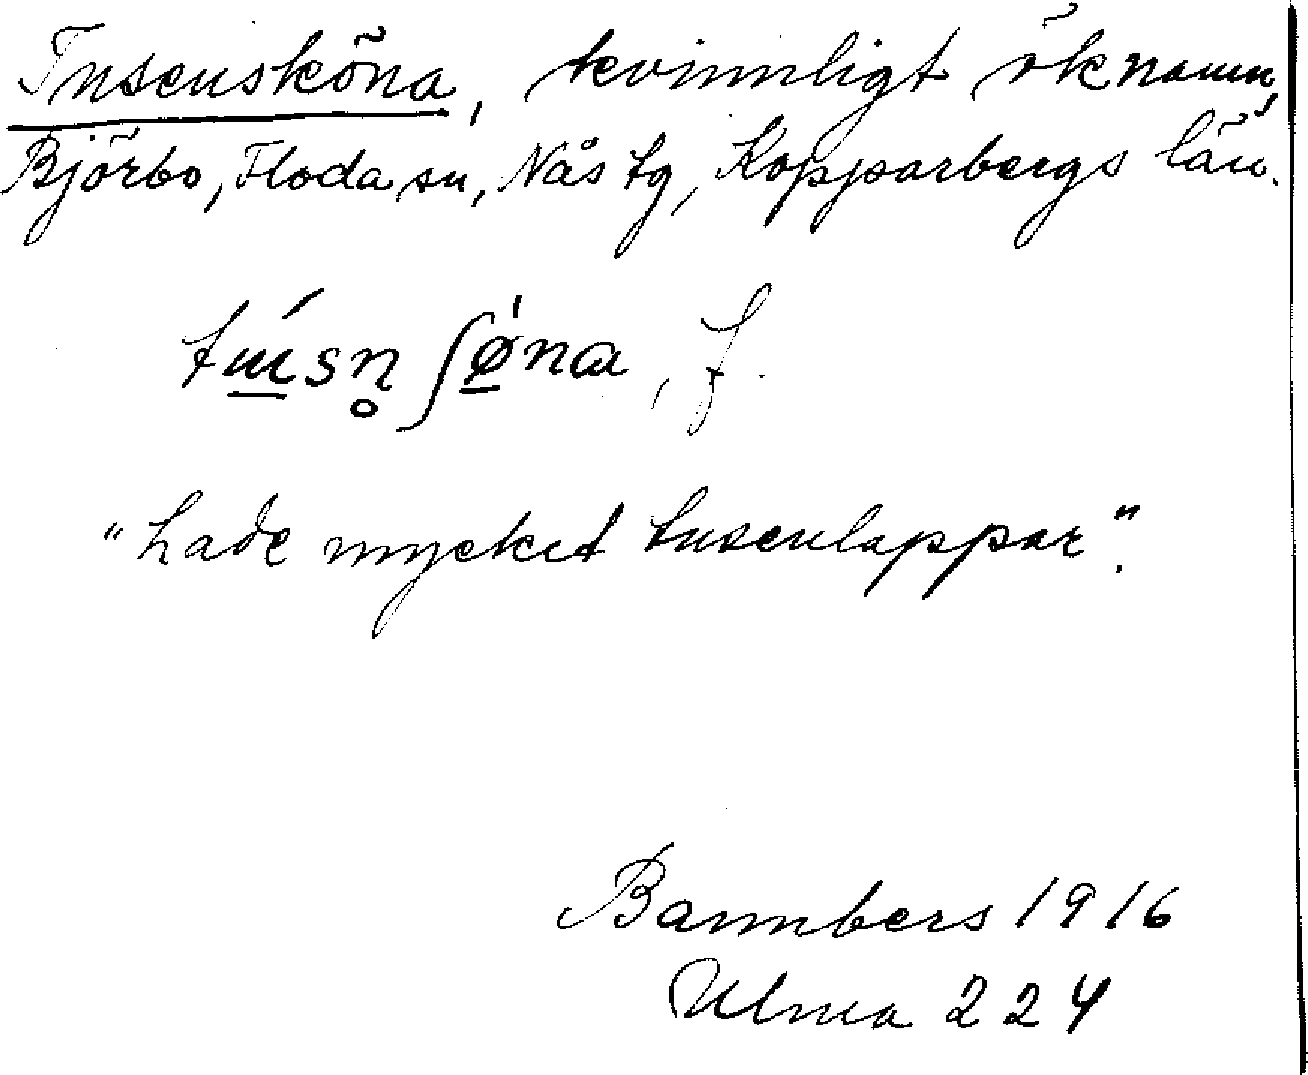 Tusensköna, kvinnligt öknamn,
Björbo, Floda sn, Nås tg, Kopparbergs län.
tú̲sn̥ ʃǿ̲na, f.
"hade mycket tusenlappar".
Bannbers 1916
Ulma 224